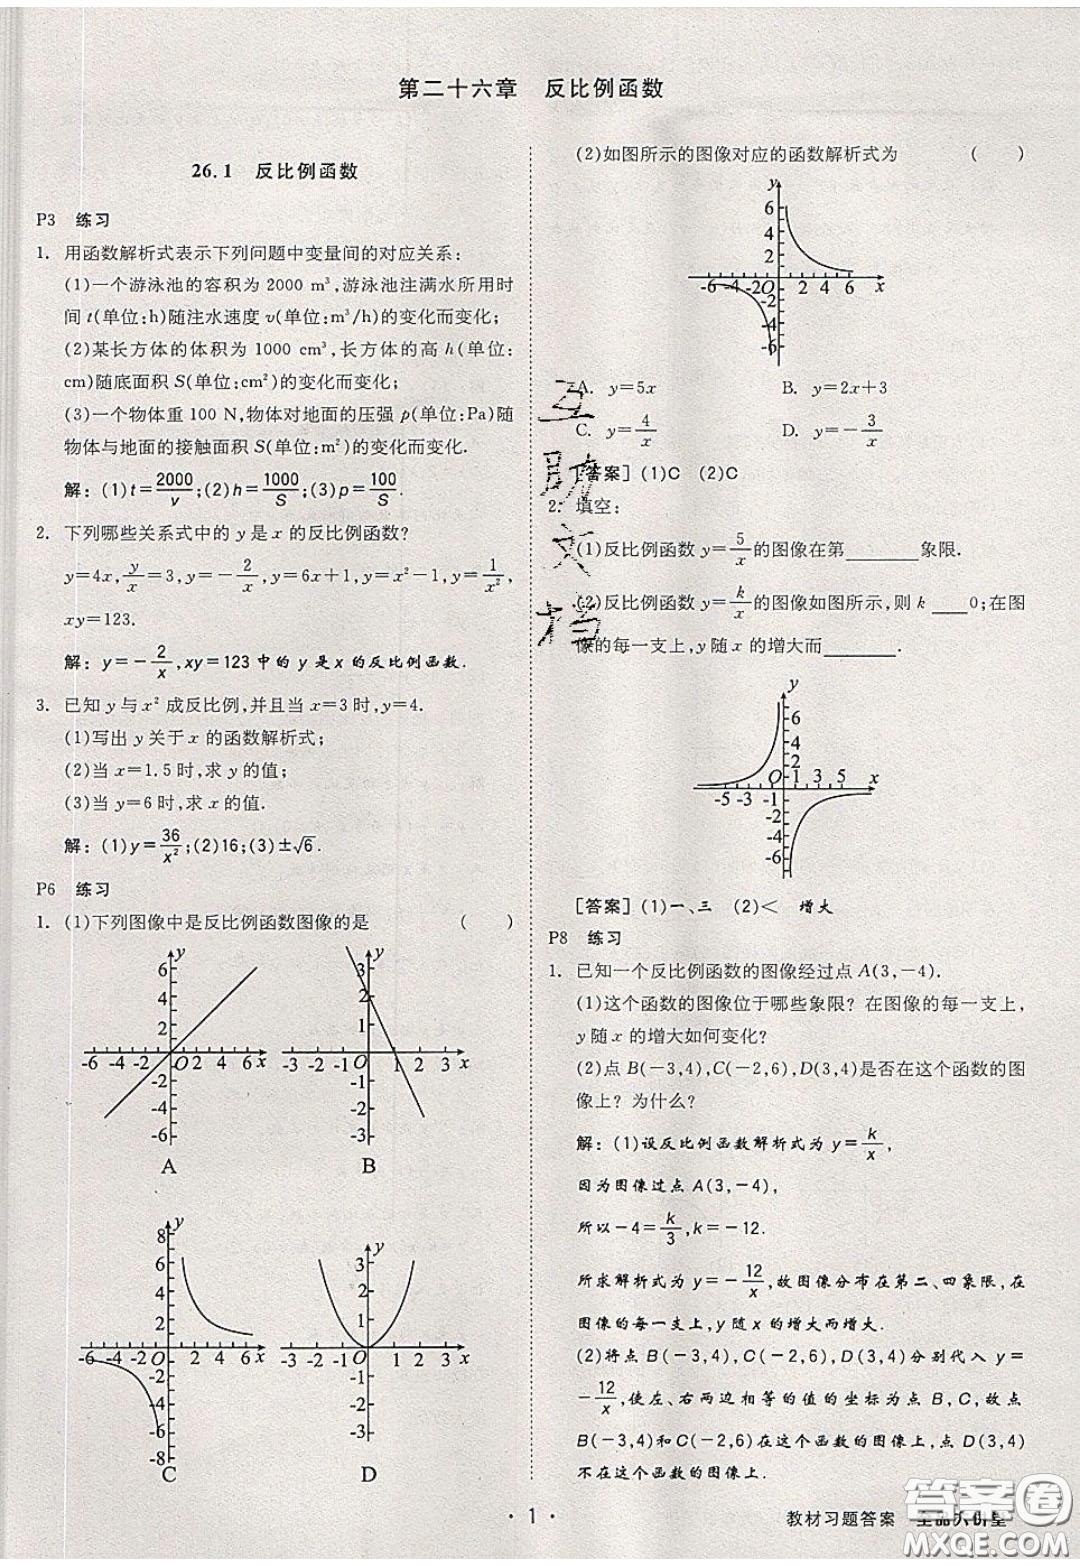 第二十六章 反比例函数
26.1 反比例函数
P3 练习
1. 用函数解析式表示下列问题中变量间的对应关系:
(1)一个游泳池的容积为 2000 m³,游泳池注满水所用时
间 t(单位:h)随注水速度 v(单位:m³/h)的变化而变化;
(2)某长方体的体积为 1000 cm³,长方体的高 h(单位:
cm)随底面积 S(单位:cm²)的变化而变化;
(3)一个物体重 100 N,物体对地面的压强 p(单位:Pa)随
物体与地面的接触面积 S(单位:m²)的变化而变化.
解:(1)t=2000/v;(2)h=1000/S;(3)p=100/S.
2. 下列哪些关系式中的 y 是 x 的反比例函数?
y=4x,y/x=3,y=-2/x,y=6x+1,y=x²-1,y=1/x²,
xy=123.
解:y=-2/x,xy=123 中的 y 是 x 的反比例函数.
3. 已知 y 与 x² 成反比例,并且当 x=3 时,y=4.
(1)写出 y 关于 x 的函数解析式;
(2)当 x=1.5 时,求 y 的值;
(3)当 y=6 时,求 x 的值.
解:(1)y=36/x²;(2)16;(3)±√6.
P6 练习
1. (1)下列图像中是反比例函数图像的是 ( )
y
6
4
2
-6 -4 -2 O 2 4 6 x
-2
-4
-6
A
y
3
2
1
-3 -2 -1 O 1 2 3 x
-1
-2
-3
B
y
8
6
4
2
-6 -4 -2 O 2 4 6 x
-2
-4
-6
-8
C
y
3
2
1
-3 -2 -1 O 1 2 3 x
-1
-2
-3
D
(2)如图所示的图像对应的函数解析式为 ( )
y
6
4
2
-6 -4 -2 O 2 4 6 x
-2
-4
-6
A. y=5x B. y=2x+3
C. y=4/x D. y=-3/x
[答案] (1)C (2)C
2. 填空:
(1)反比例函数 y=5/x 的图像在第______象限.
(2)反比例函数 y=k/x 的图像如图所示,则 k ___0;在图
像的每一支上,y 随 x 的增大而______.
y
6
4
2
O 1 3 5 x
-5 -3 -1
-2
-4
-6
[答案] (1)一、三 (2)< 增大
P8 练习
1. 已知一个反比例函数的图像经过点 A(3,-4).
(1)这个函数的图像位于哪些象限? 在图像的每一支上,
y 随 x 的增大如何变化?
(2)点 B(-3,4),C(-2,6),D(3,4)是否在这个函数的图
像上? 为什么?
解:(1)设反比例函数解析式为 y=k/x,
因为图像过点 A(3,-4),
所以-4=k/3,k=-12.
所求解析式为 y=-12/x,故图像分布在第二、四象限,在
图像的每一支上,y随 x 的增大而增大.
(2)将点 B(-3,4),C(-2,6),D(3,4)分别代入 y=
-12/x,使左、右两边相等的值的坐标为点 B,C,故点
B(-3,4)和C(-2,6)在这个函数的图像上,点 D(3,4)
不在这个函数的图像上.
· 1 ·
教材习题答案 全品大讲堂
互助文档
答案圈
MXQE.COM